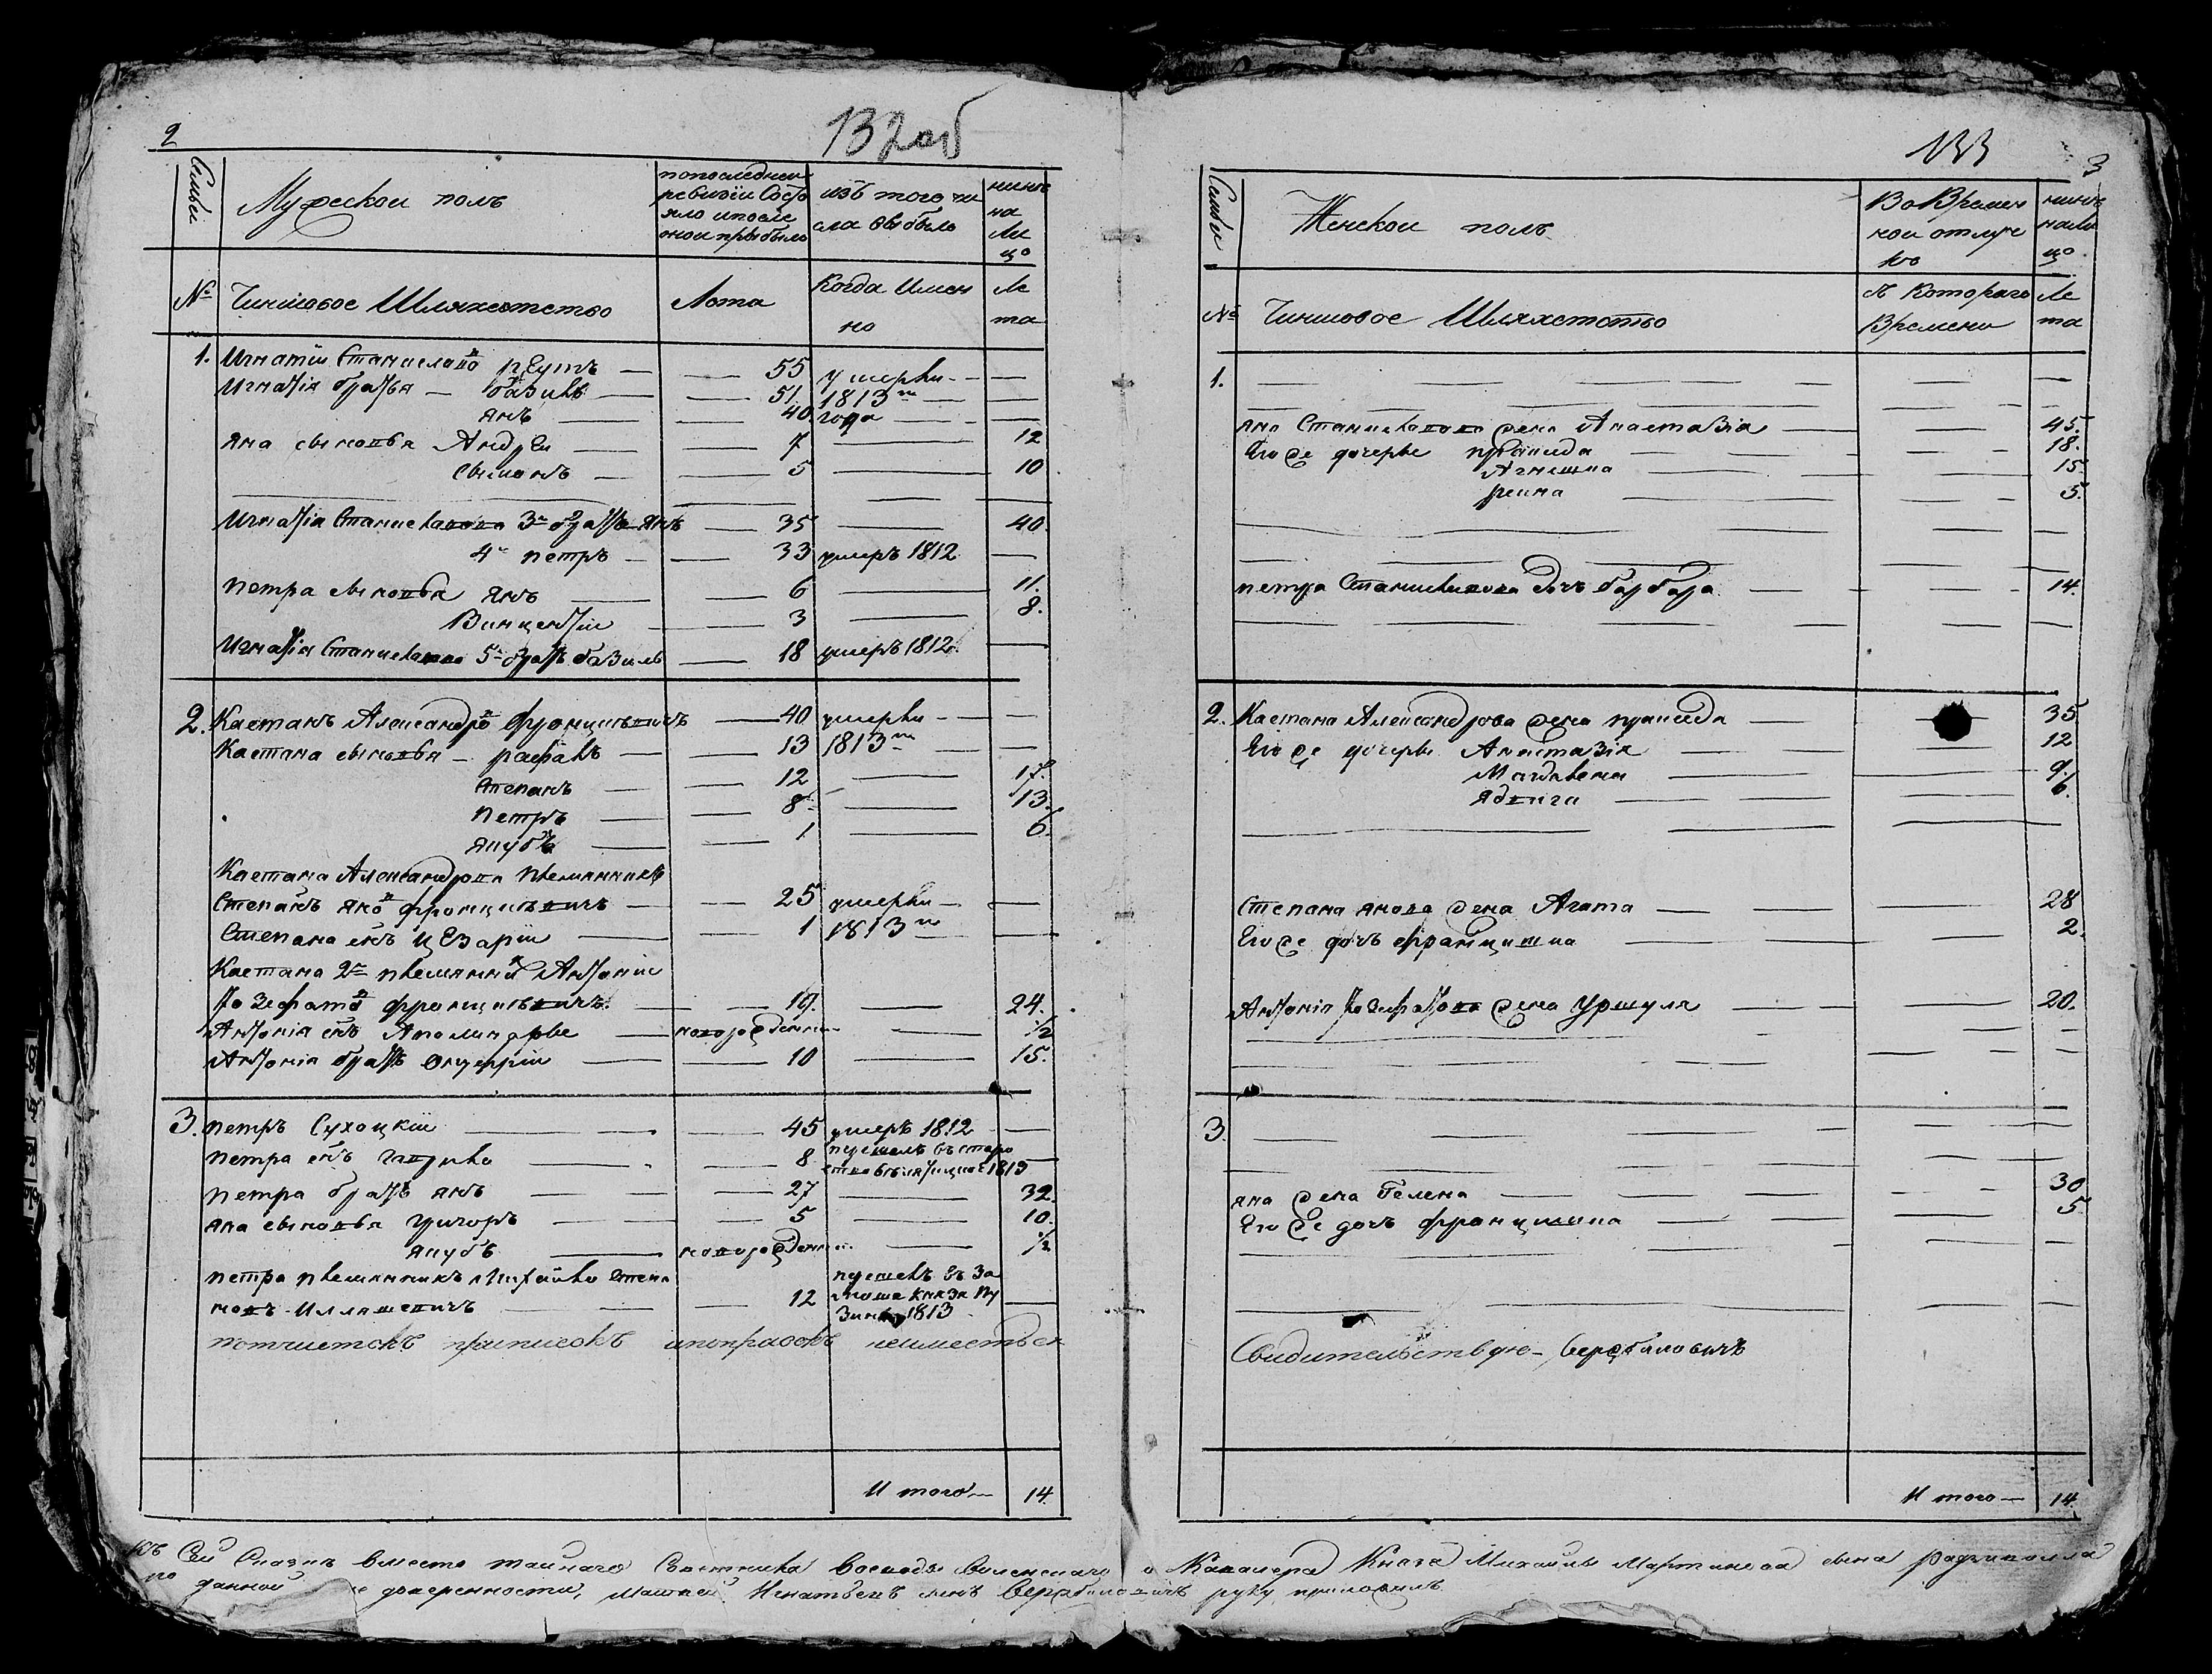 2
132 об
Семьи
Мужескои полъ
попоследнеи
ревизіи Состо
яло ипосле
онои прыбыло
изъ того чи
сла выбыло
нине
на
Ли
цо
№
Чиншовое Шляхетство
Лета
Когда Имен
но
Ле
та
1. Игнатіи Станиславо͞в — 55 умерли — —
Игнатія братья — базиль — 51. 1813 го —
янъ — 40 года —
яна сыновья Андреи — 7 — 12
сымонъ — 5 — 10
Игнатія Станиславова 3й братъ янъ — 35 — 40.
4й петръ — 33 умеръ 1812 —
петра сыновья янъ — 6 — 11.
Винцентіи — 3 — 8.
Игнатія Станиславова 5й братъ базиль — 18 умеръ 1812. —
2. Каетанъ Александро͞в францкевичъ — 40 умерли — —
Каетана сыновья — рафалъ — 13 1813 го —
степанъ — 12 — 17.
петръ — 8 — 13.
якубъ — 1 — 6.
Каетана Александрова племянникъ
степанъ яно͞в францкевичъ — 25 умерли — —
степана сынъ цезаріи — 1 1813 го —
Каетана 2й племянни͞к Антоніи
Іозефато͞в францкевичъ — 19. — 24.
Антонія сынъ Аполинарые — новорожденни — 1/2
Антонія братъ онуфріи — 10 — 15.
3. петръ Сухоцкіи — 45 умеръ 1812 —
петра сынъ — 8 перешолъ въ старо
1813 —
петра братъ янъ — 27 — 32.
яна сыновья григоръ — 5 — 10.
якубъ — новорожденни — 1/2
петра племянникъ михаило степа
новъ Илляшевичъ — 12 перешолъ въ
Князя
1813 —
почисткъ приписокъ ипоправокъ неиместься
Итого — 14.
133
3
Семьи
Женскои полъ
ВоВремен
нои отлуч
ке
нине
нали
цо
№
Чиншовое Шляхетство
съ Которого
Времени
Ле
та
1. — — —
яна Станиславова жена Анастазія — 45.
Его же дочерые праксѣда — 18.
Агнешка — 15.
реина — 5.
петра Станиславова дочъ барбара — 14.
2. Каетана Александрова жена праксѣда — 35.
Его же дочерые Анастазія — 12
Магдалена — 9.
ядвига — 6.
степана янова жена Агата — 28
Его же дочъ францишка — 2.
Антонія Іозефатова жена Уршуля — 20.
3. — — —
яна жена Гелена — 30
Его же дочъ францишка — 5
Свидительствую — Вержбиловичъ
Итого — 14.
Къ Сей Сказкѣ вместо таинаго Советника Воеводы Виленскаго и Кавалера Князя Михаила Мартинова сына радзивилла
по данной доверенности, Матвей Игнатьевъ сынъ Вержбиловичъ руку приложилъ